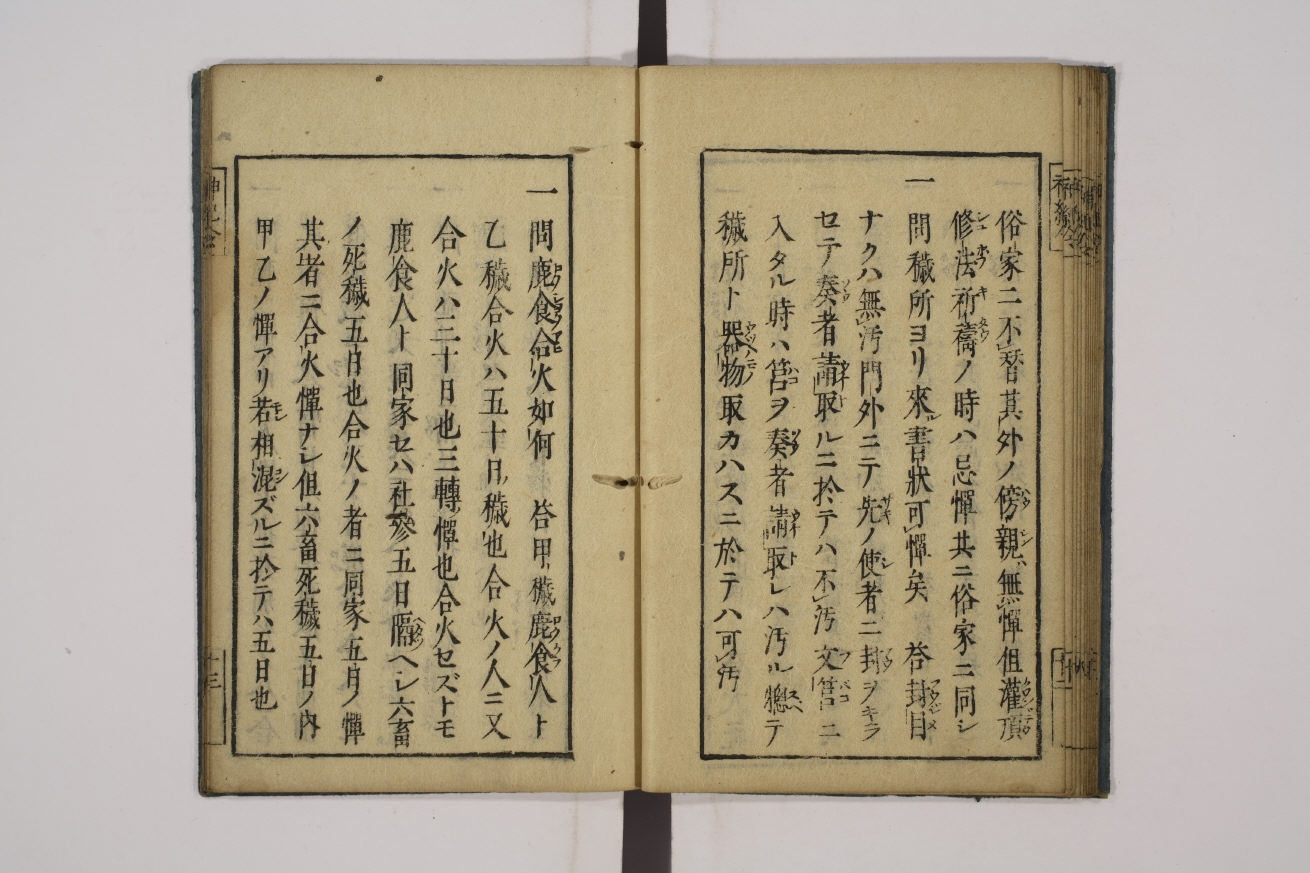 俗家ニ不替其外ノ傍親無憚但灌頂
修法祈禱ノ時ハ忌憚共ニ俗家ニ同シ
一 問穢所ヨリ來書狀可憚矣 答封目
ナクハ無汚門外ニテ先ノ使者ニ封ヲキラ
セテ奏者請取ルニ於テハ不汚文筥ニ
入タル時ハ筥ヲ奏者請取レハ汚ル惣テ
穢所ト器物取カハスニ於テハ可汚
一 問鹿食合火如何 答甲穢鹿食人ト
乙穢合火ハ五十日穢也合火ノ人ニ又
合火ハ三十日也三轉憚也合火セズトモ
鹿食人ト同家セハ社參五日隔ヘシ六畜
ノ死穢五日也合火ノ者ニ同家五日ノ憚
其者ニ合火憚ナシ但六畜死穢五日ノ内
甲乙ノ憚アリ若相混ズルニ於テハ五日也
十三